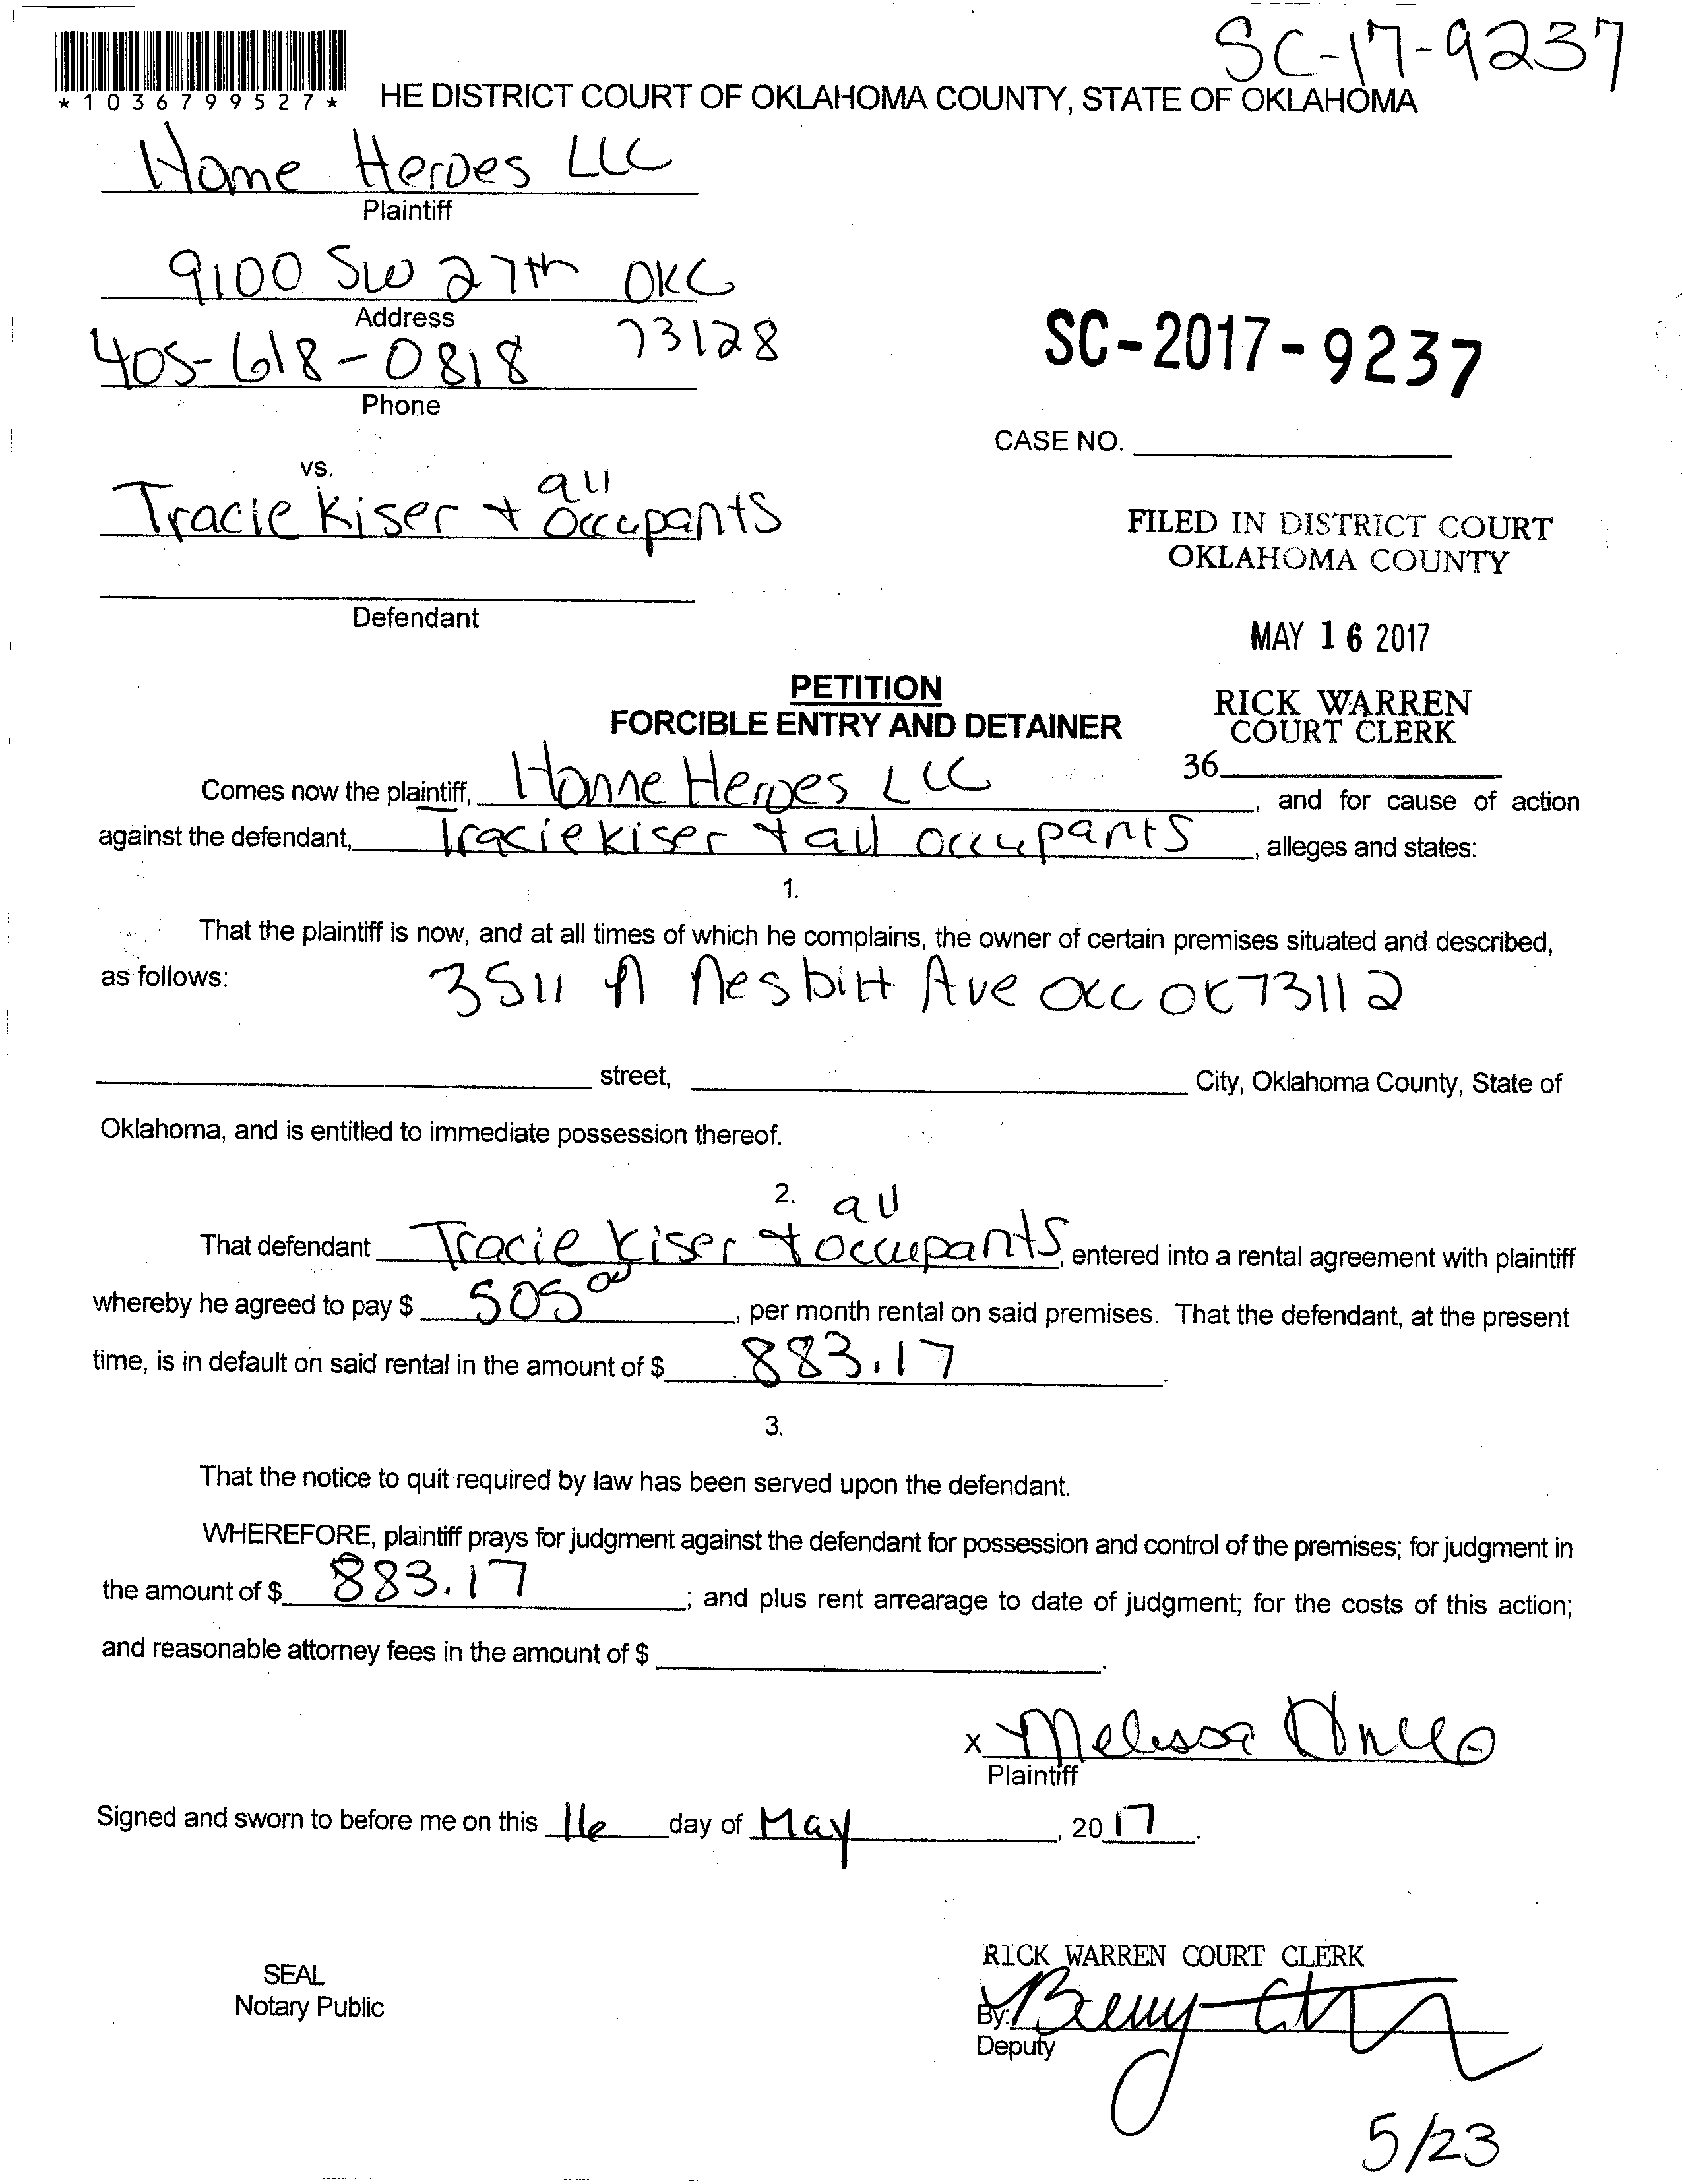 SC-17-9237
*1036799527*
HE DISTRICT COURT OF OKLAHOMA COUNTY, STATE OF OKLAHOMA
Home Heroes LLC
Plaintiff
9100 SW 27th OKC
Address
73128
405-618-0818
Phone
SC-2017-9237
CASE NO.
vs.
all
Tracie Kiser + occupants
Defendant
FILED IN DISTRICT COURT
OKLAHOMA COUNTY
MAY 16 2017
RICK WARREN
COURT CLERK
36
PETITION
FORCIBLE ENTRY AND DETAINER
Comes now the plaintiff, Home Heroes LLC, and for cause of action
against the defendant, Tracie Kiser + all occupants, alleges and states:
1.
That the plaintiff is now, and at all times of which he complains, the owner of certain premises situated and described,
as follows: 3511 N Nesbitt Ave OKC OK 73112
street, City, Oklahoma County, State of
Oklahoma, and is entitled to immediate possession thereof.
2.
all
That defendant Tracie Kiser + occupants, entered into a rental agreement with plaintiff
whereby he agreed to pay $ 505 00, per month rental on said premises. That the defendant, at the present
time, is in default on said rental in the amount of $ 883.17.
3.
That the notice to quit required by law has been served upon the defendant.
WHEREFORE, plaintiff prays for judgment against the defendant for possession and control of the premises; for judgment in
the amount of $ 883.17; and plus rent arrearage to date of judgment; for the costs of this action;
and reasonable attorney fees in the amount of $ .
x Melissa
Plaintiff
Signed and sworn to before me on this 16 day of May, 2017.
SEAL
Notary Public
RICK WARREN COURT CLERK
By:
Deputy
5/23